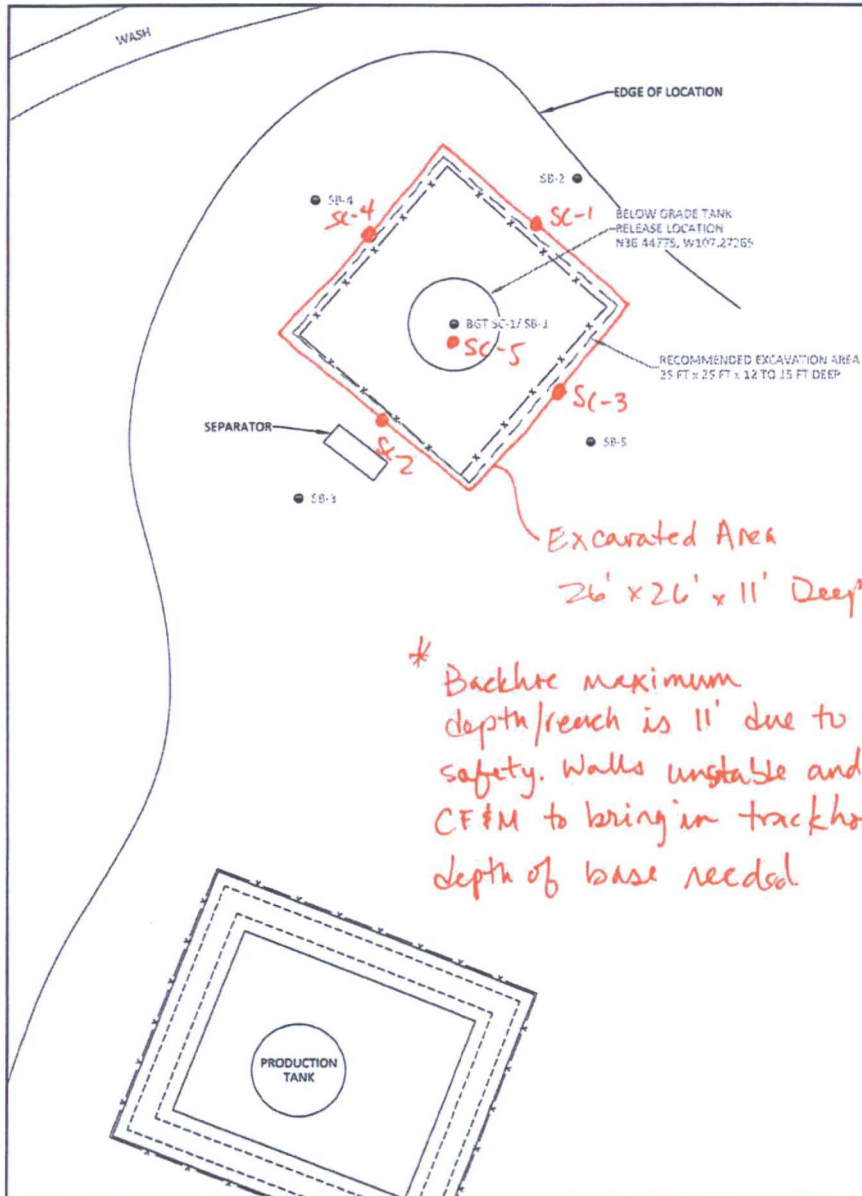 WASH
EDGE OF LOCATION
SB-2
SB-4
SC-4
SC-1
BELOW GRADE TANK
RELEASE LOCATION
N36.44775, W107.27265
BGT SC-1/ SB-1
SC-5
RECOMMENDED EXCAVATION AREA
25 FT x 25 FT x 12 TO 15 FT DEEP
SC-3
SEPARATOR
SC-2
SB-5
SB-3
Excavated Area
26' x 26' x 11' Deep
* Backhoe maximum
depth/reach is 11' due to
safety. Walls unstable and
CF&M to bring in trackho
depth of base needed.
PRODUCTION
TANK